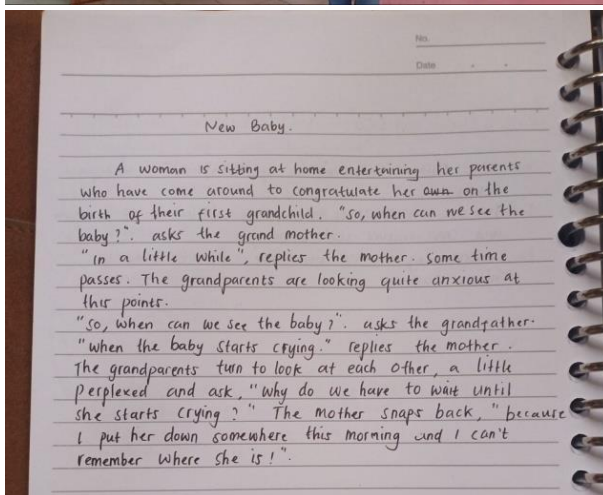 No.
Date
New Baby.
A woman is sitting at home entertaining her parents
who have come around to congratulate her own on the
birth of their first grandchild. "so, when can we see the
baby?". asks the grand mother.
"in a little while", replies the mother. some time
passes. The grandparents are looking quite anxious at
this points.
"so, when can we see the baby?". asks the grandfather.
"when the baby starts crying." replies the mother.
The grandparents turn to look at each other, a little
perplexed and ask, "why do we have to wait until
she starts crying?" The mother snaps back, "because
I put her down somewhere this morning and I can't
remember where she is!".